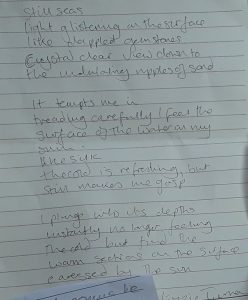 Still seas
light glistening on the surface
like dappled gemstones
Crystal clear view down to
the undulating ripples of sand
It tempts me in
treading carefully I feel the
surface of the water on my
skin
the cold is refreshing, but
still makes me gasp
I plunge into its depths
instantly no longer feeling
the cold but find the
warm sections on the surface
caressed by the sun